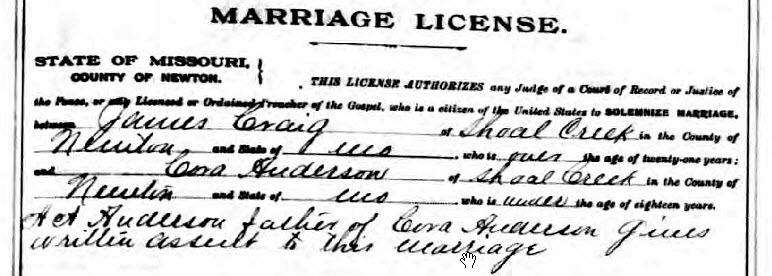 MARRIAGE LICENSE.
STATE OF MISSOURI,
COUNTY OF NEWTON.
THIS LICENSE AUTHORIZES any Judge of a Court of Record or Justice of
the Peace, or any Licensed or Ordained Preacher of the Gospel, who is a citizen of the United States to SOLEMNIZE MARRIAGE,
between James Craig of Shoal Creek in the County of
Newton and State of Mo, who is over the age of twenty-one years;
and Cora Anderson of Shoal Creek in the County of
Newton and State of Mo who is under the age of eighteen years.
Anderson father of Cora Anderson gives
written assent to this marriage